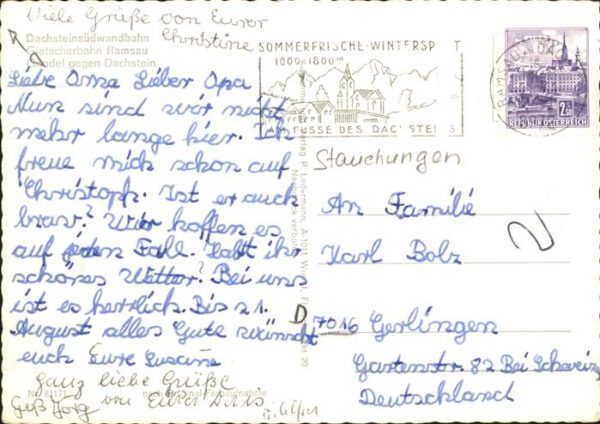 Viele Grüße von Eurer
Christine
Dachsteinsüdwandbahn
Gletscherbahn Ramsau
Gondel gegen Dachstein
Liebe Oma Lieber Opa
Nun sind wir nicht
mehr lange hier. Ich
freue mich schon auf
Christoph. Ist er auch
brav? Wir hoffen es
auf jeden Fall. Habt ihr
schönes Wetter? Bei uns
ist es herrlich. Bis 21.
August alles Gute wünscht
euch Eure Susanne
Ganz liebe Grüße
von Eurer Doris
Gruß Jörg
SOMMERFRISCHE-WINTERSP T
1000-1800m
FUSSE DES DACHSTEINS
RAMSAU AM DA
2.50
REPUBLIK ÖSTERREICH
Stauchungen
An Familie
Karl Bolz
D 7016 Gerlingen
Gartenstr. 82 Bei
Deutschland